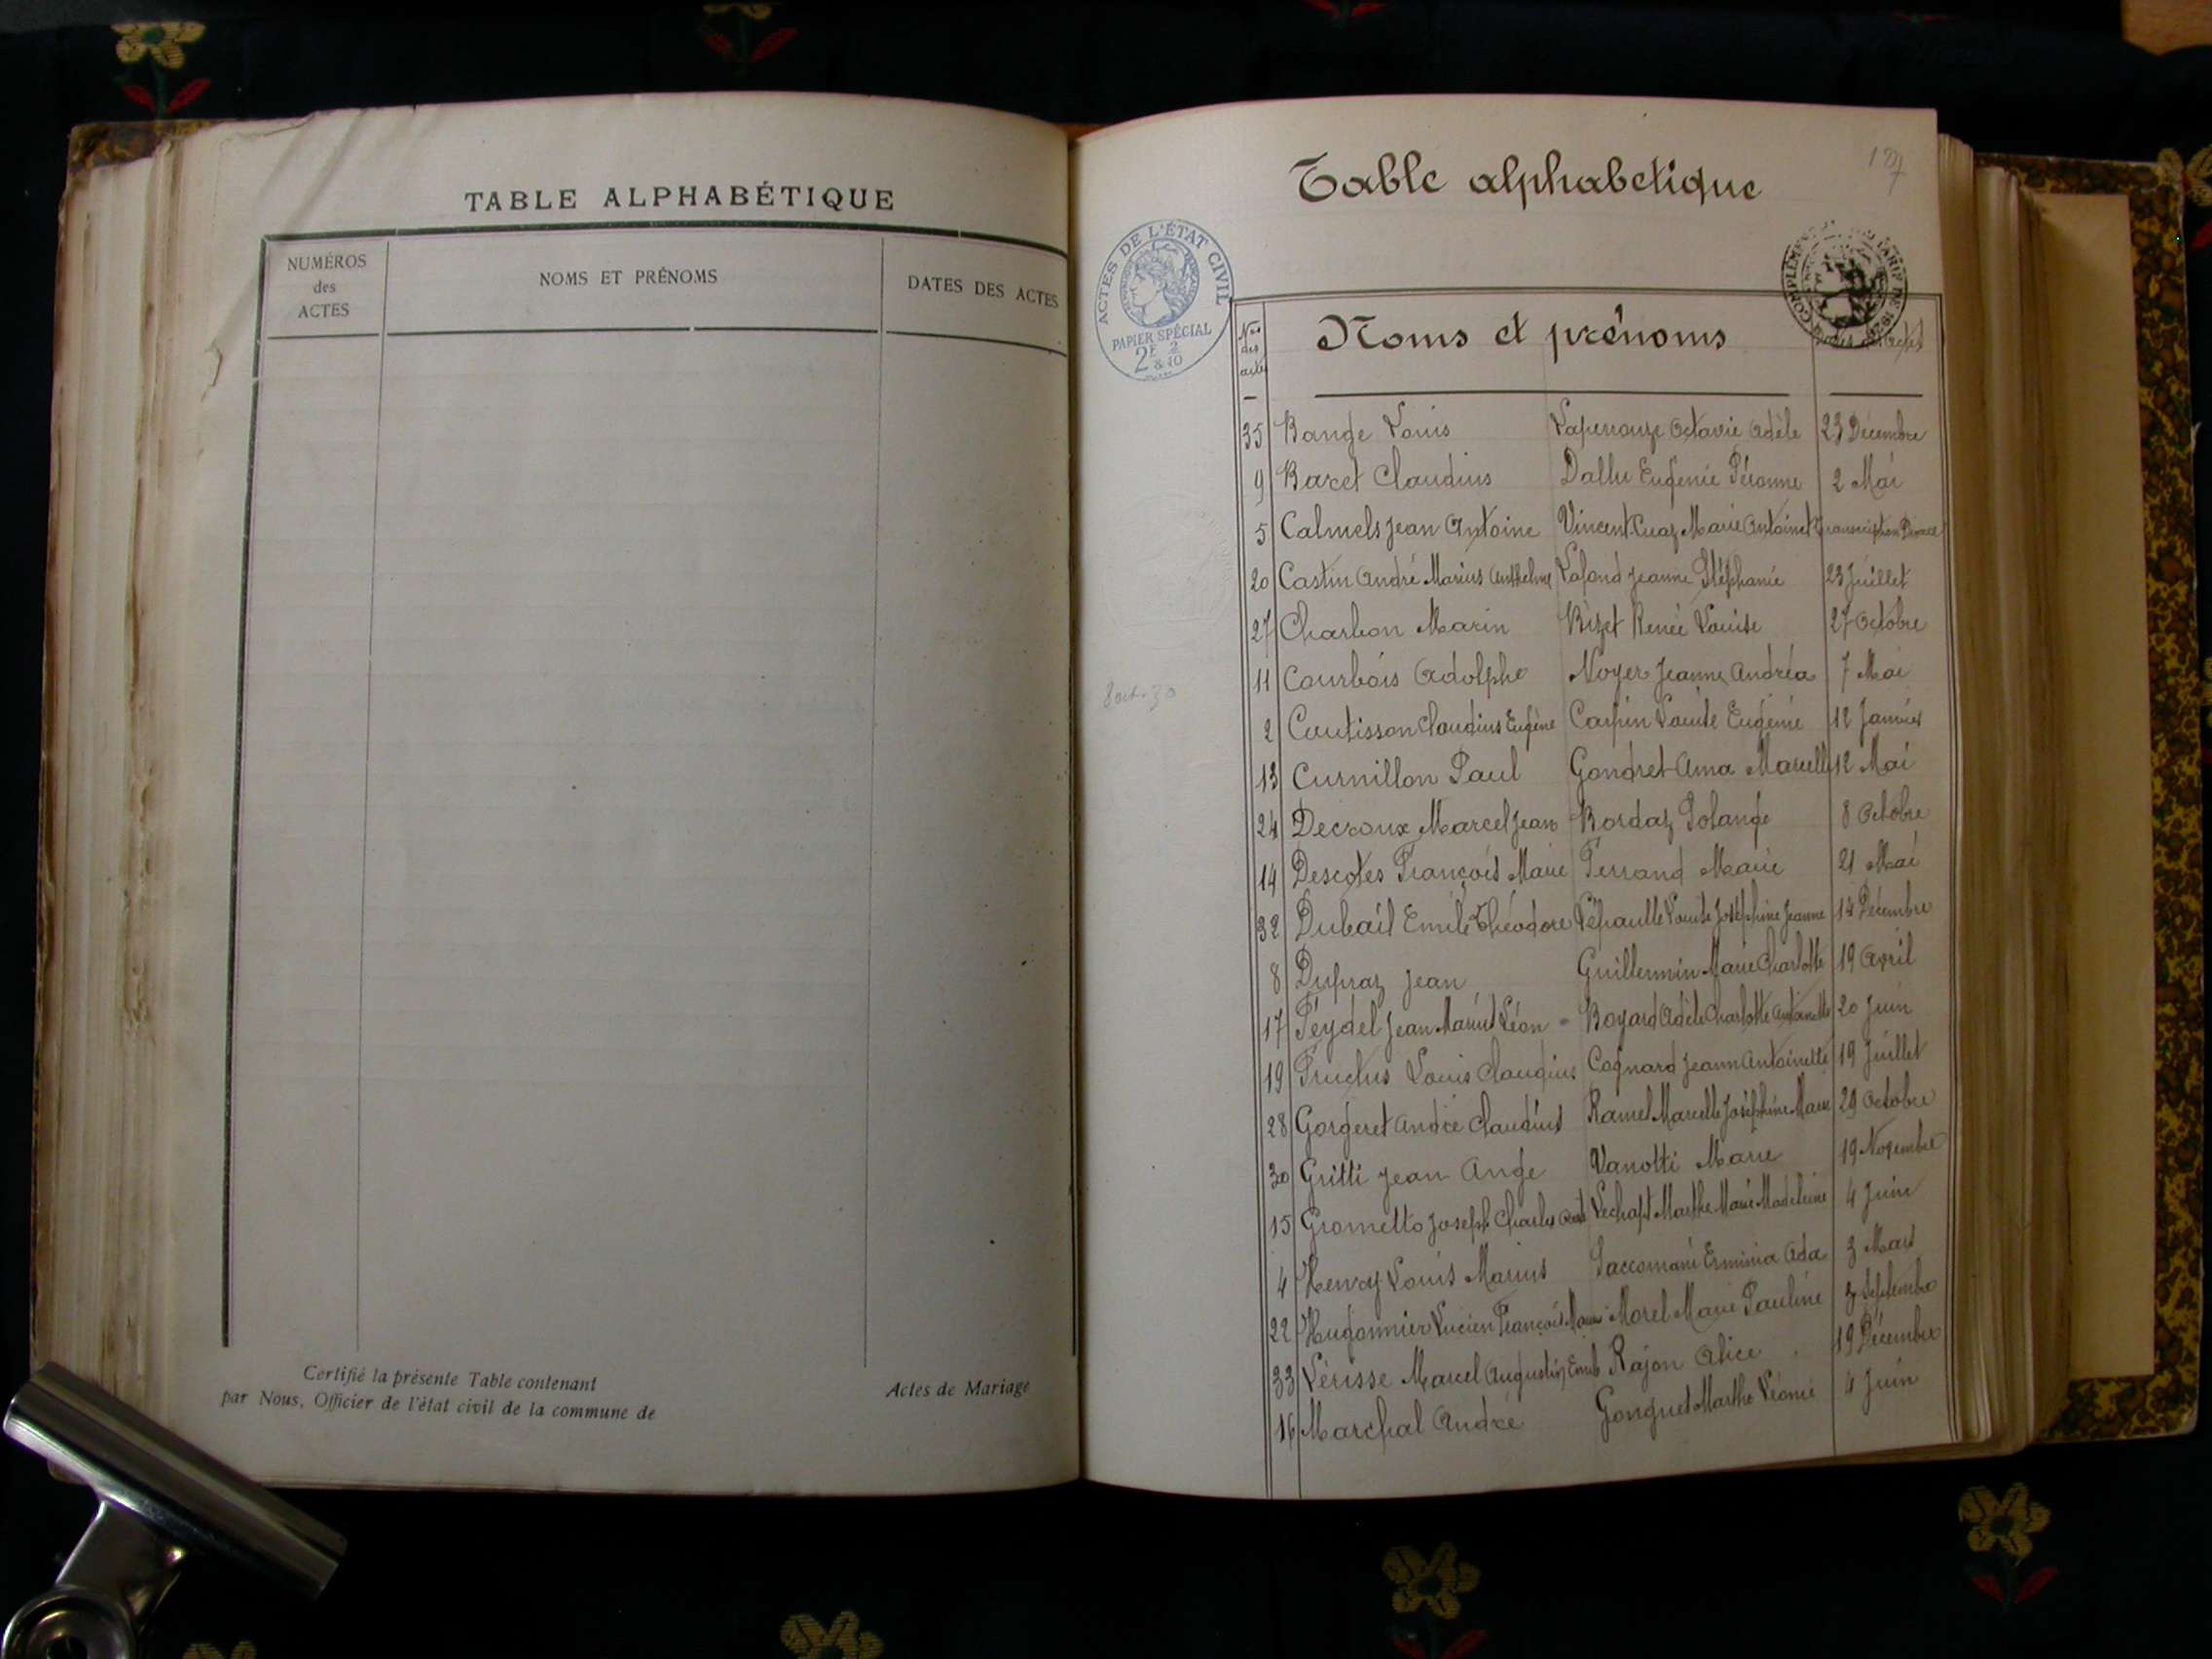 TABLE ALPHABÉTIQUE
NUMÉROS
des
ACTES
NOMS ET PRÉNOMS
DATES DES ACTES
Certifié la présente Table contenant
Actes de Mariage
par Nous, Officier de l'état civil de la commune de
Table alphabetique
ACTES DE L'ÉTAT CIVIL
PAPIER SPÉCIAL
2F & 2/10
Nos
des
actes
Noms et prénoms
35 Bange Louis Laperouze Octavie Adèle 23 Décembre
9 Baret Claudius Dallu Eugénie Péronne 2 Mai
5 Calmels Jean Antoine Vincent Cuaz Marie Antoinet Transcription Divorce
20 Castin André Marius Anthelme Lafond Jeanne Stéphanie 23 Juillet
27 Charbon Marin Bizet Renée Louise 27 Octobre
11 Courbois Adolphe Noyer Jeanne Andréa 7 Mai
8 oct. 30
2 Coutisson Claudius Eugène Carpin Louise Eugénie 12 Janvier
13 Curnillon Paul Gondret Ama Marcelle 12 Mai
24 Decroux Marcel Jean Bordaz Solange 8 Octobre
14 Descotes François Marie Ferrand Marie 21 Mai
32 Dubail Emile Théodore Lépaulle Louise Joséphine Jeanne 14 Décembre
8 Dupraz Jean Guillermin Marie Charlotte 19 Avril
17 Feydel Jean Marius Léon - Boyard Adèle Charlotte Antoinette 20 Juin
19 Fruchus Louis Claudius Cognard Jeanne Antoinette 19 Juillet
28 Gorgeret André Claudius Ramel Marcelle Joséphine Marie 29 Octobre
30 Gritti Jean Ange Vanotti Marie 19 Novembre
15 Grometto Joseph Charles Lechapt Marthe Marie Madeleine 4 Juin
4 Henry Louis Marius Saccomani Erminia Ada 3 Mars
22 Hugonnier Lucien François Marie Morel Marie Pauline 3 Septembre
33 Lérisse Marcel Augustin Emile Rajon Alice 19 Décembre
16 Marchal André Gonguet Marthe Léonie 4 Juin